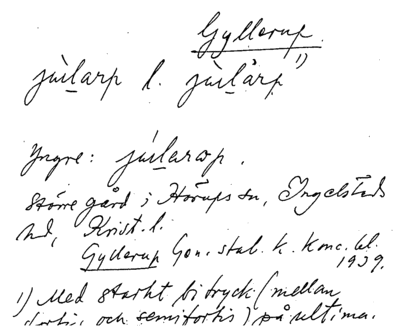 Gyllerup.
jùi̱larp l. jùi̱lårp 1)
Yngre: júi̱larop.
större gård i Hörups sn, Ingelstads
hd, Krist. l.
Gyllerup Gen. stab. k. Konc. bl.
1939.
1) Med starkt bitryck (mellan
fortis och semifortis) på ultima.